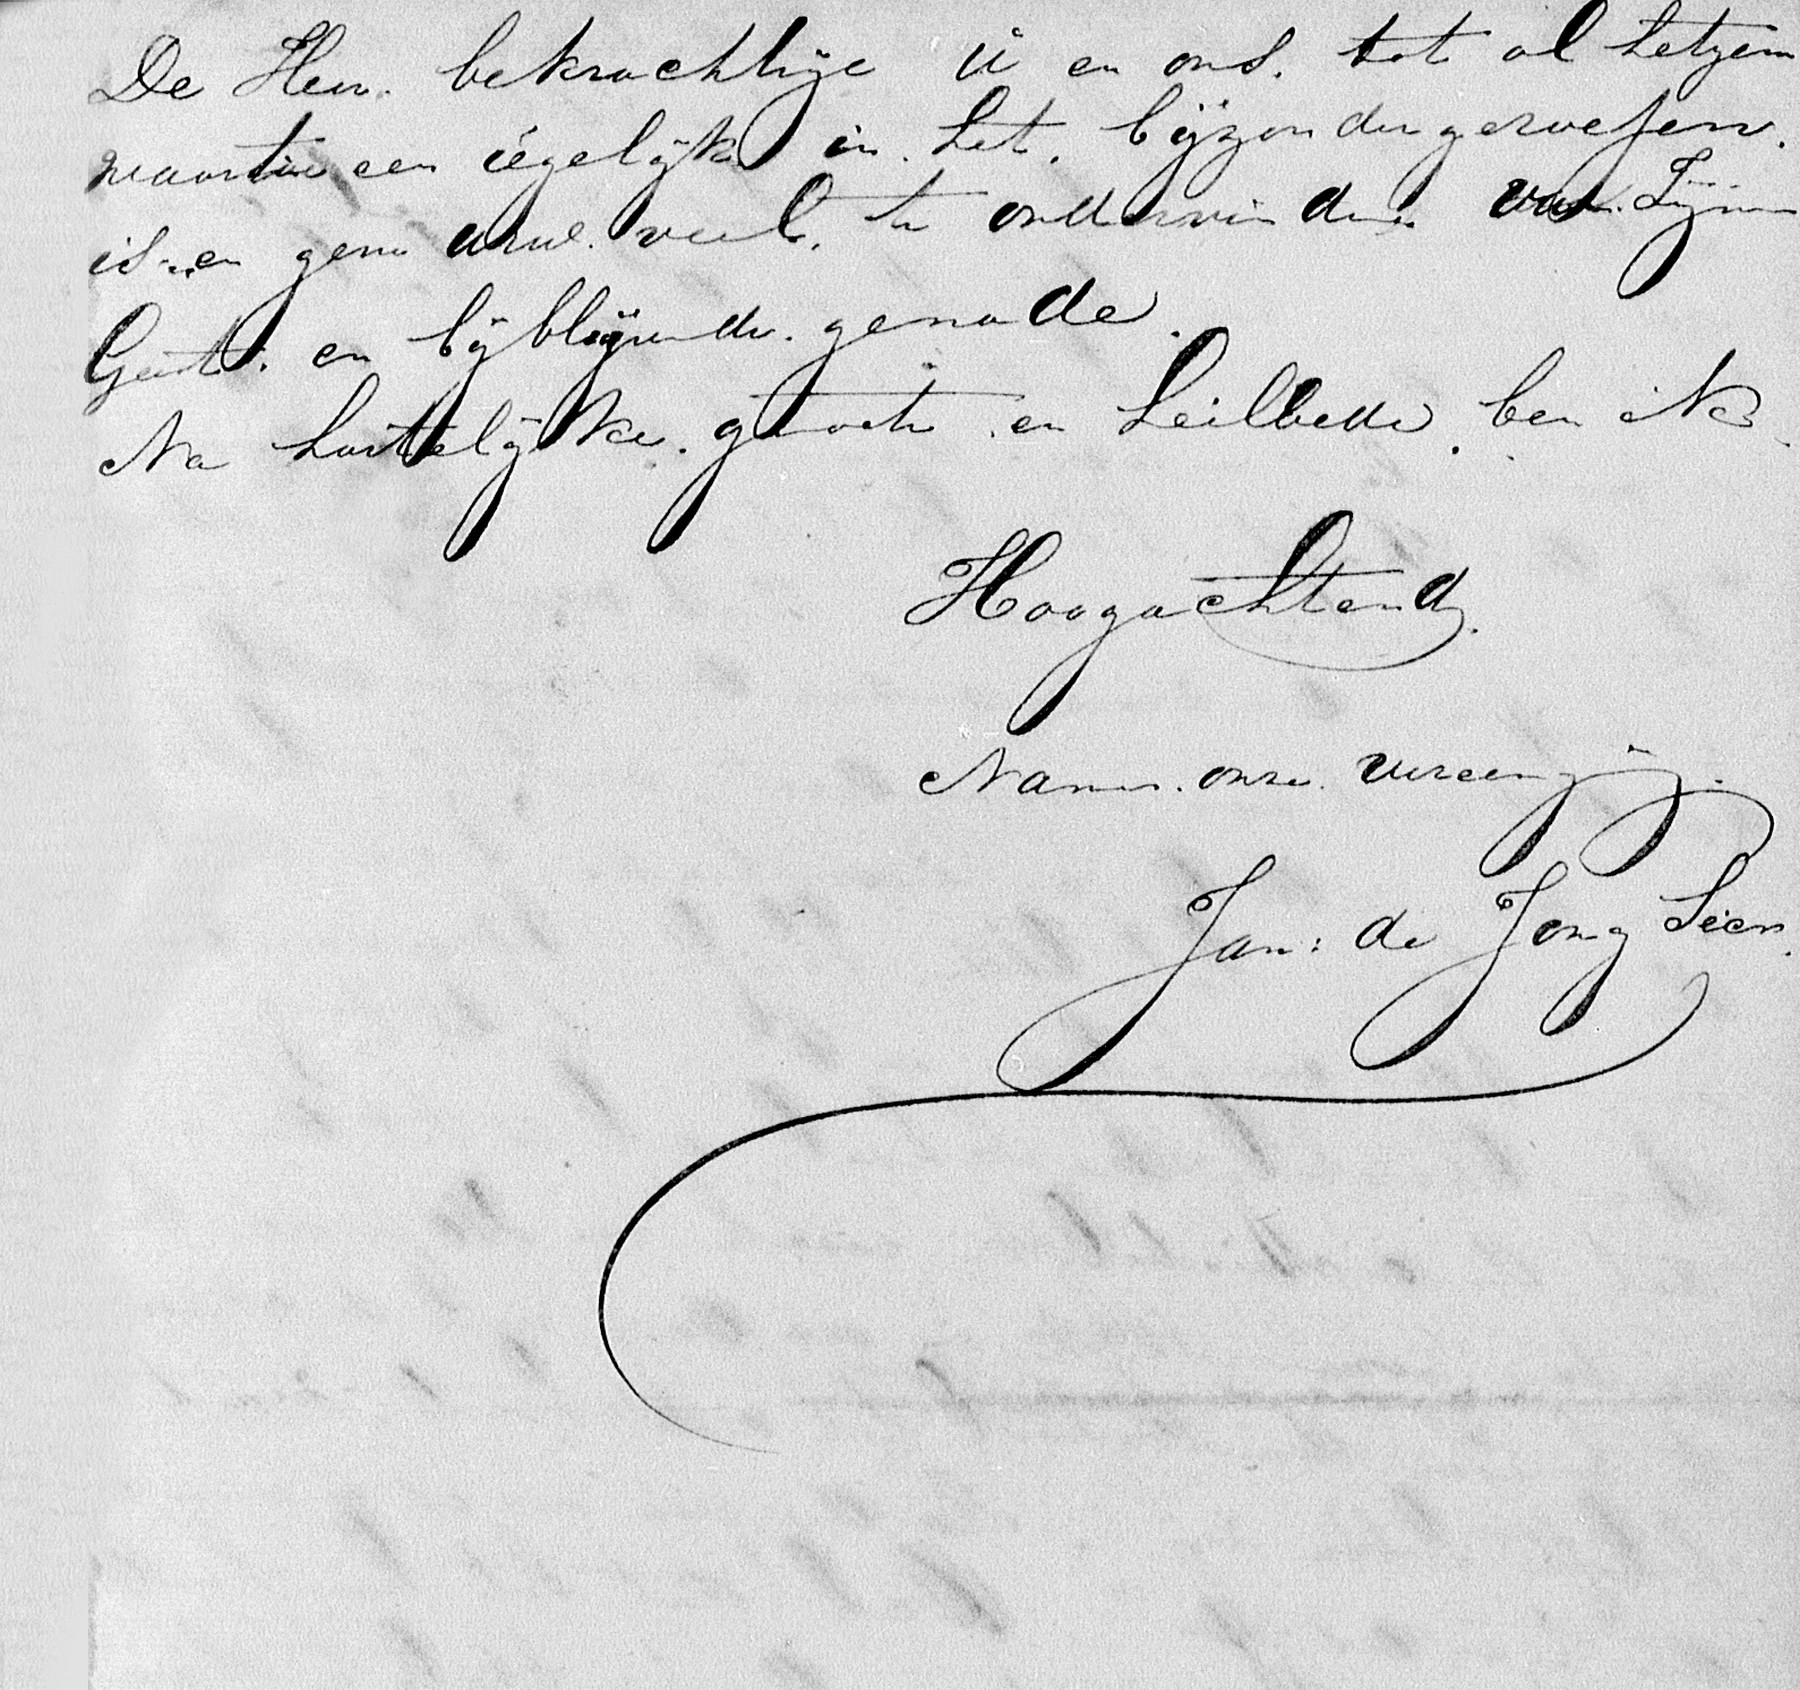 De Heer. bekrachtige U en ons. tot al hetgeen
waartoe een iegelijk in. het. bijzonder geroepen.
is en geve uwe. veel. te ondervinden van. Zijnen
Geest. en bijblijvende. genade.
Na hartelijke. groete en heilbede. ben ik
Hoogachtend.
Namens. onze. vereeniging.
Jan: de Jong